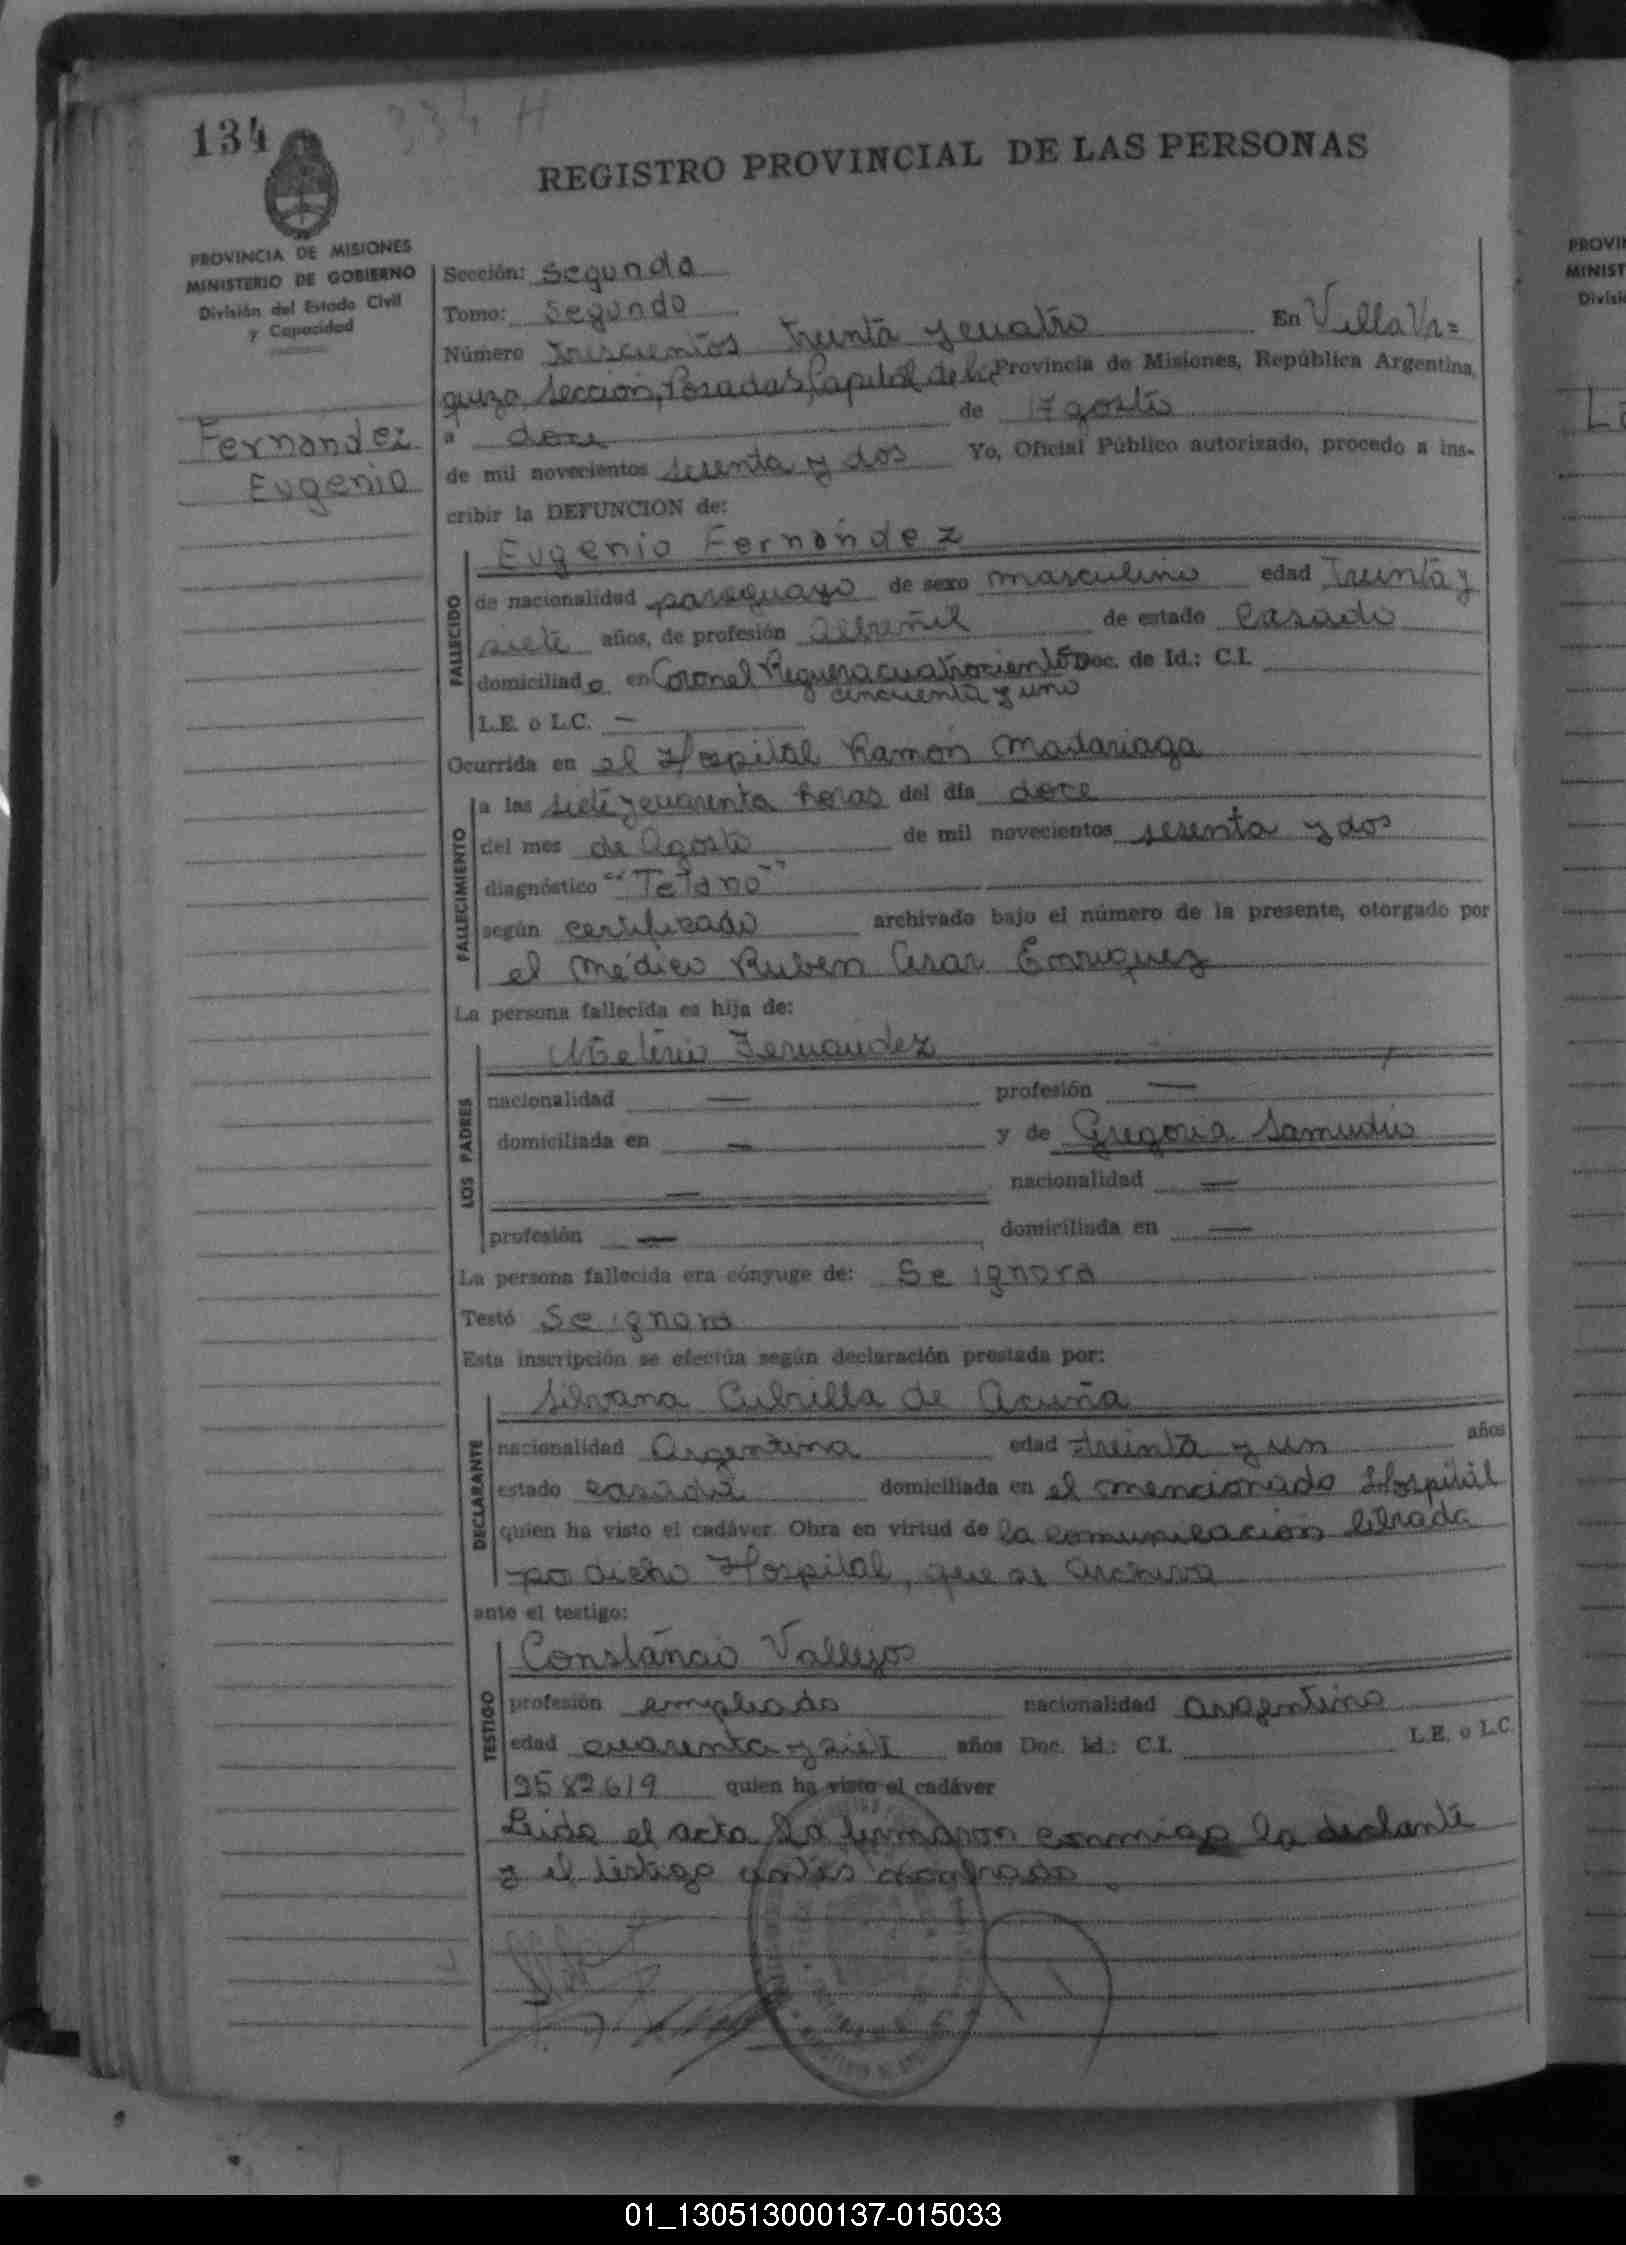 134
334 H
REGISTRO PROVINCIAL DE LAS PERSONAS
PROVINCIA DE MISIONES
MINISTERIO DE GOBIERNO
División del Estado Civil
y Capacidad
Fernandez
Eugenio
Sección: Segunda
Tomo: Segundo
Número trescientos treinta y cuatro En Villa Ur=
quiza Sección, Posadas, Capital de la Provincia de Misiones, República Argentina,
a doce de Agosto
de mil novecientos sesenta y dos Yo, Oficial Público autorizado, procedo a ins-
cribir la DEFUNCION de:
FALLECIDO
Eugenio Fernández
de nacionalidad paraguayo de sexo masculino edad Treinta y
siete años, de profesión albañil de estado Casado
domiciliado en Coronel Reguera cuatrociento Doc. de Id.: C.I.
cincuenta y uno
L.E. o L.C. —
Ocurrida en el Hospital Ramón Madariaga
FALLECIMIENTO
a las siete y cuarenta horas del día doce
del mes de Agosto de mil novecientos sesenta y dos
diagnóstico "Tetano"
según certificado archivado bajo el número de la presente, otorgado por
el médico Ruben Cesar Enriquez
La persona fallecida es hija de:
LOS PADRES
Fernandez
nacionalidad — profesión —
domiciliada en — y de Gregoria Samudio
— nacionalidad —
profesión — domiciliada en —
La persona fallecida era cónyuge de: Se ignora
Testó Se ignora
Esta inscripción se efectúa según declaración prestada por:
DECLARANTE
Silvana Cubilla de Acuña
nacionalidad Argentina edad treinta y un años
estado casada domiciliada en el mencionado Hospital
quien ha visto el cadáver. Obra en virtud de la comunicación librada
po dicho Hospital, que se archiva
ante el testigo:
TESTIGO
Constancio Vallejos
profesión empleado nacionalidad argentino
edad cuarenta y siete años Doc. Id.: C.I. L.E. o L.C.
3582619 quien ha visto el cadáver
Leida el acta la firmaron conmigo la declante
y el testigo antes nombrado.
PROVIN
MINIST
Divisió
01_130513000137-015033